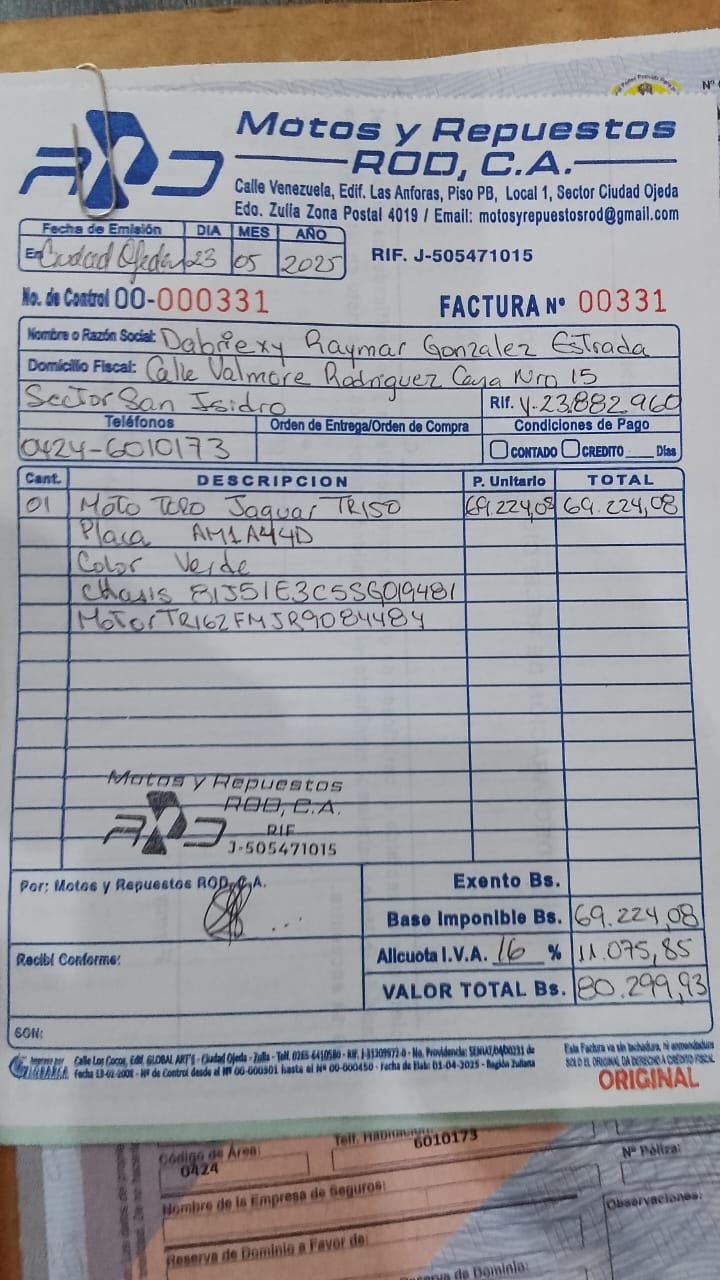 Motos y Repuestos
ROD, C.A.
Calle Venezuela, Edif. Las Anforas, Piso PB, Local 1, Sector Ciudad Ojeda
Edo. Zulia Zona Postal 4019 / Email: motosyrepuestosrod@gmail.com
Fecha de Emisión DIA MES AÑO
En Ciudad Ojeda 23 05 2025
RIF. J-505471015
No. de Control 00-000331
FACTURA N° 00331
Nombre o Razón Social: Dabriexy Raymar Gonzalez Estrada
Domicilio Fiscal: Calle Valmore Rodriguez Casa Nro 15
Sector San Isidro Rif. V-23.882.960
Teléfonos Orden de Entrega/Orden de Compra Condiciones de Pago
0424-6010173 CONTADO CREDITO Días
Cant. DESCRIPCION P. Unitario TOTAL
01 Moto Toro Jaguar TR150 69.224,08 69.224,08
Placa AM1A44D
Color Verde
Chasis 81J51E3C5SG019481
Motor TR162FMJR9084484
Motos y Repuestos
ROD, C.A.
RIF
J-505471015
Por: Motos y Repuestos ROD, C.A.
Exento Bs.
Base Imponible Bs. 69.224,08
Recibí Conforme:
Alícuota I.V.A. 16 % 11.075,85
VALOR TOTAL Bs. 80.299,93
SON:
Calle Los Cocos, Edif. GLOBAL ART'S - Ciudad Ojeda - Zulia - Telf. 0265-6410580 - RIF. J-31309972-0 - No. Providencia: SENIAT/04/00231 de
Fecha 13-02-2008 - N° de Control desde el N° 00-000301 hasta el N° 00-000450 - Fecha de Elab: 01-04-2025 - Región Zuliana
Esta Factura va sin tachadura, ni enmendadura
SOLO EL ORIGINAL DA DERECHO A CRÉDITO FISCAL
ORIGINAL
Código de Área:
0424
6010173
N° Póliza:
Nombre de la Empresa de Seguros:
Observaciones:
Reserva de Dominio a Favor de: